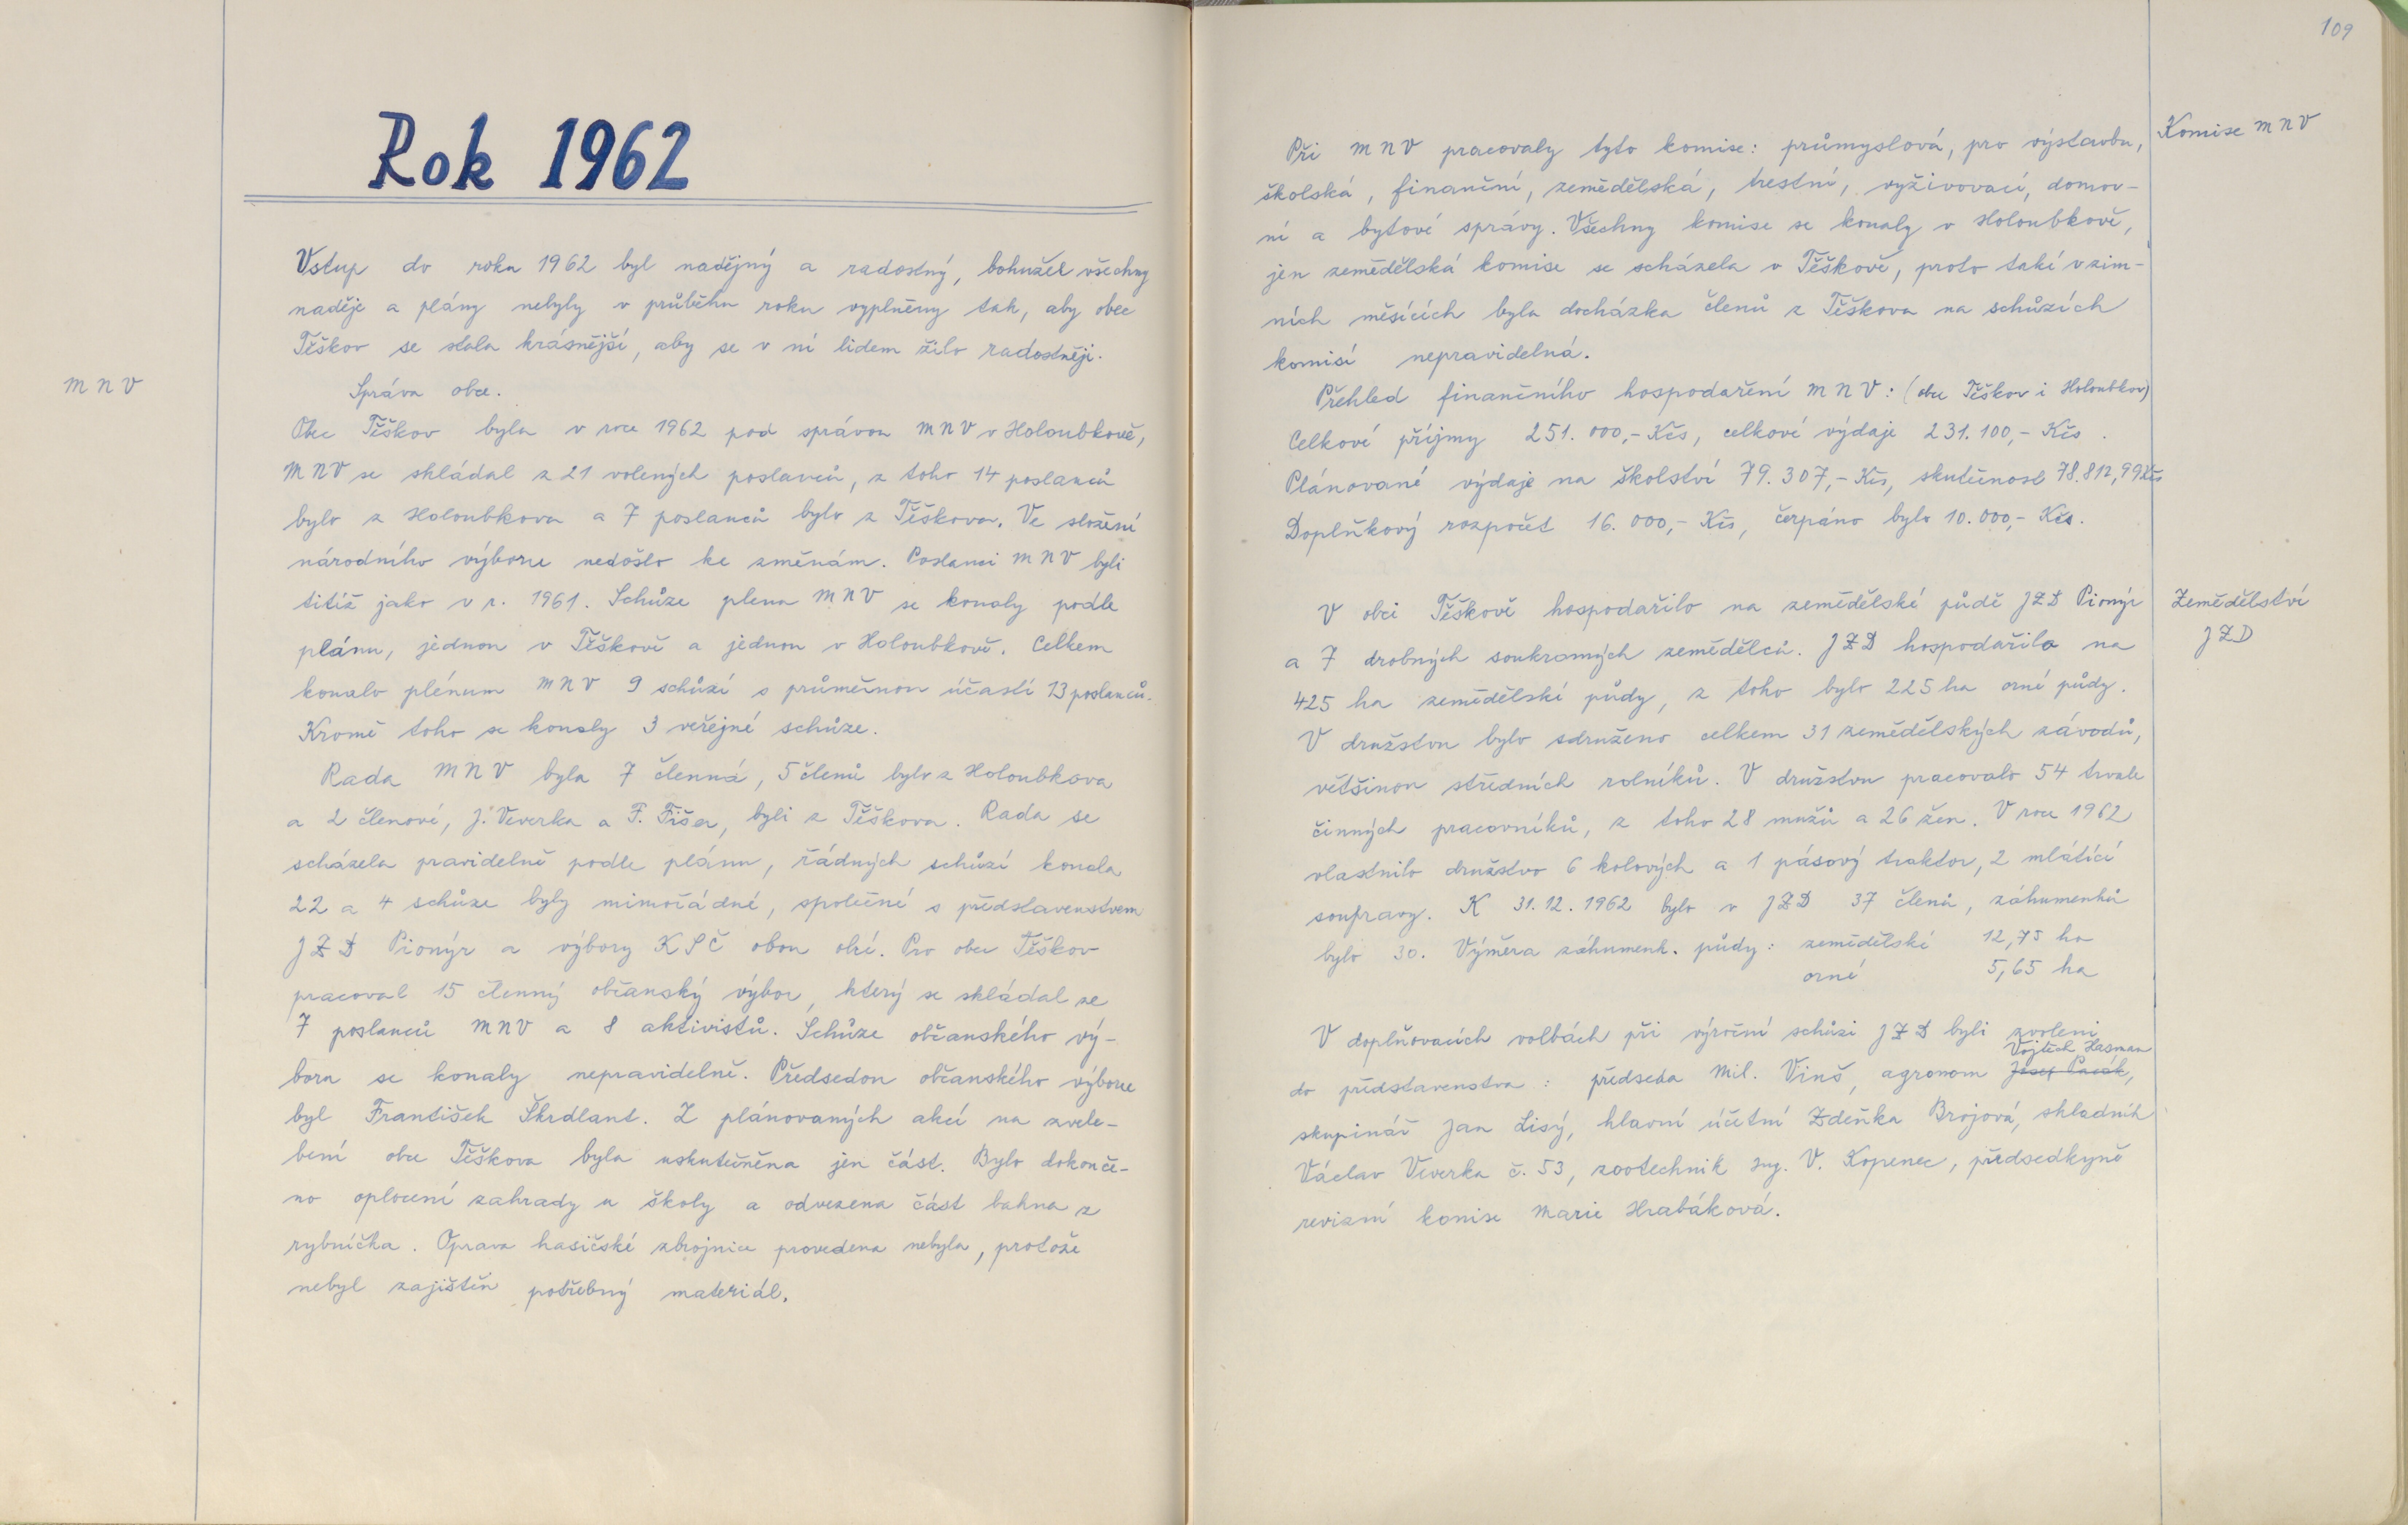 Rok 1962
Vstup do roku 1962 byl nadějný a radostný, bohužel všechny
naděje a plány nebyly v průběhu roku vyplněny tak, aby obec
Těškov se stala krásnější, aby se v ní lidem žilo radostněji.
M N V
Správa obce.
Obec Těškov byla v roce 1962 pod správou MNV v Holoubkově,
MNV se skládal z 21 volených poslanců, z toho 14 poslanců
bylo z Holoubkova a 7 poslanců bylo z Těškova. Ve složení
národního výboru nedošlo ke změnám. Poslanci MNV byli
titíž jako v r. 1961. Schůze plena MNV se konaly podle
plánu, jednou v Těškově a jednou v Holoubkově. Celkem
konalo plénum MNV 9 schůzí s průměrnou účastí 13 poslanců.
Kromě toho se konaly 3 veřejné schůze.
Rada MNV byla 7 členná, 5 členů bylo z Holoubkova
a 2 členové, J. Veverka a F. Fišer, byli z Těškova. Rada se
scházela pravidelně podle plánu, řádných schůzí konala
22 a 4 schůze byly mimořádné, společné s představenstvem
JZD Pionýr a výbory KSČ obou obcí. Pro obec Těškov
pracoval 15 členný občanský výbor, který se skládal ze
7 poslanců MNV a 8 aktivistů. Schůze občanského vý-
boru se konaly nepravidelně. Předsedou občanského výboru
byl František Škrdlant. Z plánovaných akcí na zvele-
bení obce Těškova byla uskutečněna jen část. Bylo dokonče-
no oplocení zahrady u školy a odvezena část bahna z
rybníčka. Oprava hasičské zbrojnice provedena nebyla, protože
nebyl zajištěn potřebný materiál.
109
Komise MNV
Při MNV pracovaly tyto komise: průmyslová, pro výstavbu,
školská, finanční, zemědělská, trestní, vyživovací, domov-
ní a bytové správy. Všechny komise se konaly v Holoubkově,
jen zemědělská komise se scházela v Těškově, proto také v zim-
ních měsících byla docházka členů z Těškova na schůzích
komisí nepravidelná.
Přehled finančního hospodaření MNV: (obce Těškov i Holoubkov)
Celkové příjmy 251.000,- Kčs, celkové výdaje 231.100,- Kčs.
Plánované výdaje na školství 79.307,- Kčs, skutečnost 78.812,99 Kčs
Doplňkový rozpočet 16.000,- Kčs, čerpáno bylo 10.000,- Kčs.
Zemědělství
JZD
V obci Těškově hospodařilo na zemědělské půdě JZD Pionýr
a 7 drobných soukromých zemědělců. JZD hospodařilo na
425 ha zemědělské půdy, z toho bylo 225 ha orné půdy.
V družstvu bylo sdruženo celkem 31 zemědělských závodů,
většinou středních rolníků. V družstvu pracovalo 54 trvale
činných pracovníků, z toho 28 mužů a 26 žen. V roce 1962
vlastnilo družstvo 6 kolových a 1 pásový traktor, 2 mlátící
soupravy. K 31.12.1962 bylo v JZD 37 členů, záhumenků
bylo 30. Výměra záhumenk. půdy: zemědělské 12,75 ha
orné 5,65 ha
V doplňovacích volbách při výroční schůzi JZD byli zvoleni
Vojtěch Hasman
do představenstva: předseda Mil. Vinš, agronom Josef Pacák,
skupinář Jan Lisý, hlavní účetní Zdeňka Brojová, skladník
Václav Veverka č. 53, zootechnik Ing. V. Kopenec, předsedkyně
revizní komise Marie Hrabáková.